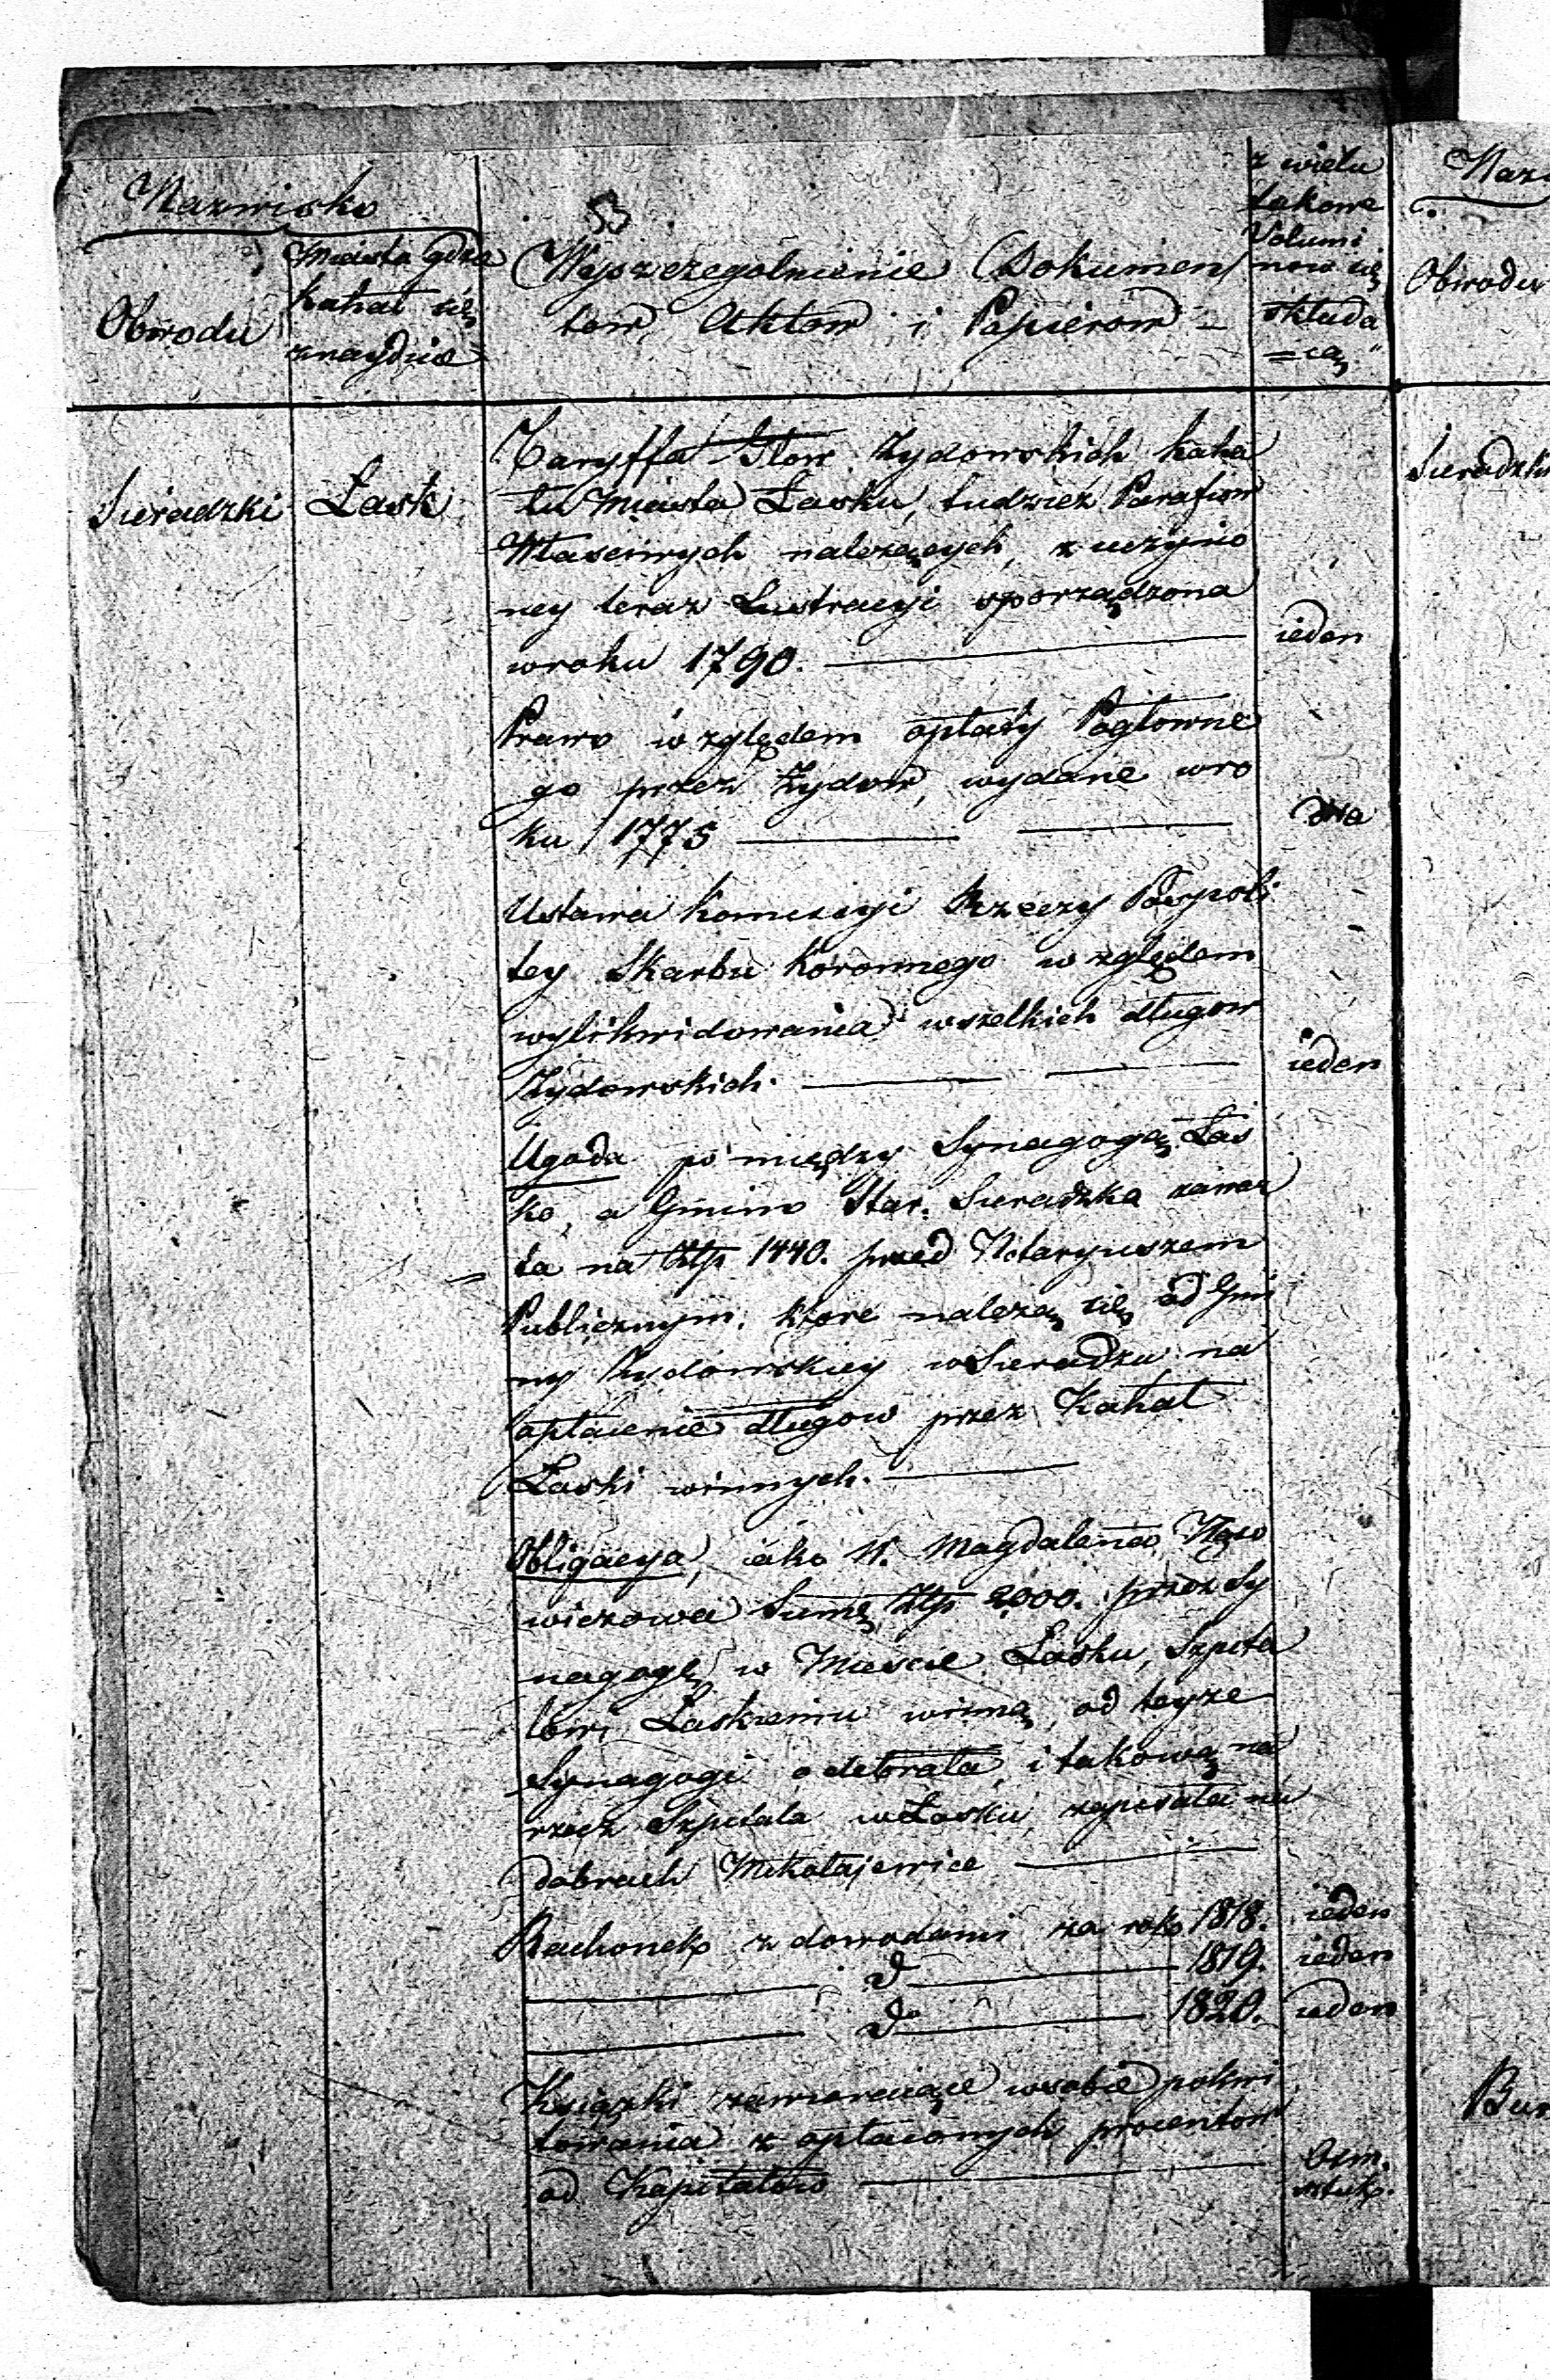 Nazwisko
Obwodu
Miasta gdzie
kahał się
znayduie
53
Wyszczegolnienie Dokumen
tow, Aktow i Papierow =
z wielu
takowe
Volumi
now się
składa
=ią
Sieradzki
Łask
Taryffa Głow Żydowskich Kaha
łu Miasta Łasku, tudzież Parafiow
Własciwych należących, z uczynio
ney teraz Lustracyi sporządzona
wroku 1790. ieden
Prawo względem opłaty Pogłowne
go przez Żydow, wydane wro
ku 1775 dwa
Ustawa Komissyi Rzeczy Pospoli
tey Skarbu Koronnego względem
wylikwidowania wszelkich długow
Żydowskich. ieden
Ugoda pomiędzy Synagogą Łas
ko, a Gmino Star. Sieradzka zawar
ta na Złp 1440. przed Notaryuszem
Publicznym, ktore należą się od Gmi
ny Żydowskiey w Sieradzu na
opłacenie długow przez Kahał
Łaski winnych.
Obligacya, iako W. Magdalena
wiczowa Sumę Złp 2000. przez Sy
nagogę w Miescie Łasku, Szpita
lowi Łaskiemu winną, od teyze
Synagogi odebrała, i takową na
rzecz Szpitala w Łasku, zapisała na
dobrach Mikołajewice
Rachonek z dowodami za rok 1818. ieden
d 1819. ieden
do 1820. ieden
Książki zawieraiące wsobie pokwi
towania z opłaconych procentow
od Kapitałow
Osm.
sztuk.
Naz
Obwodu
Sieradzki
Bur